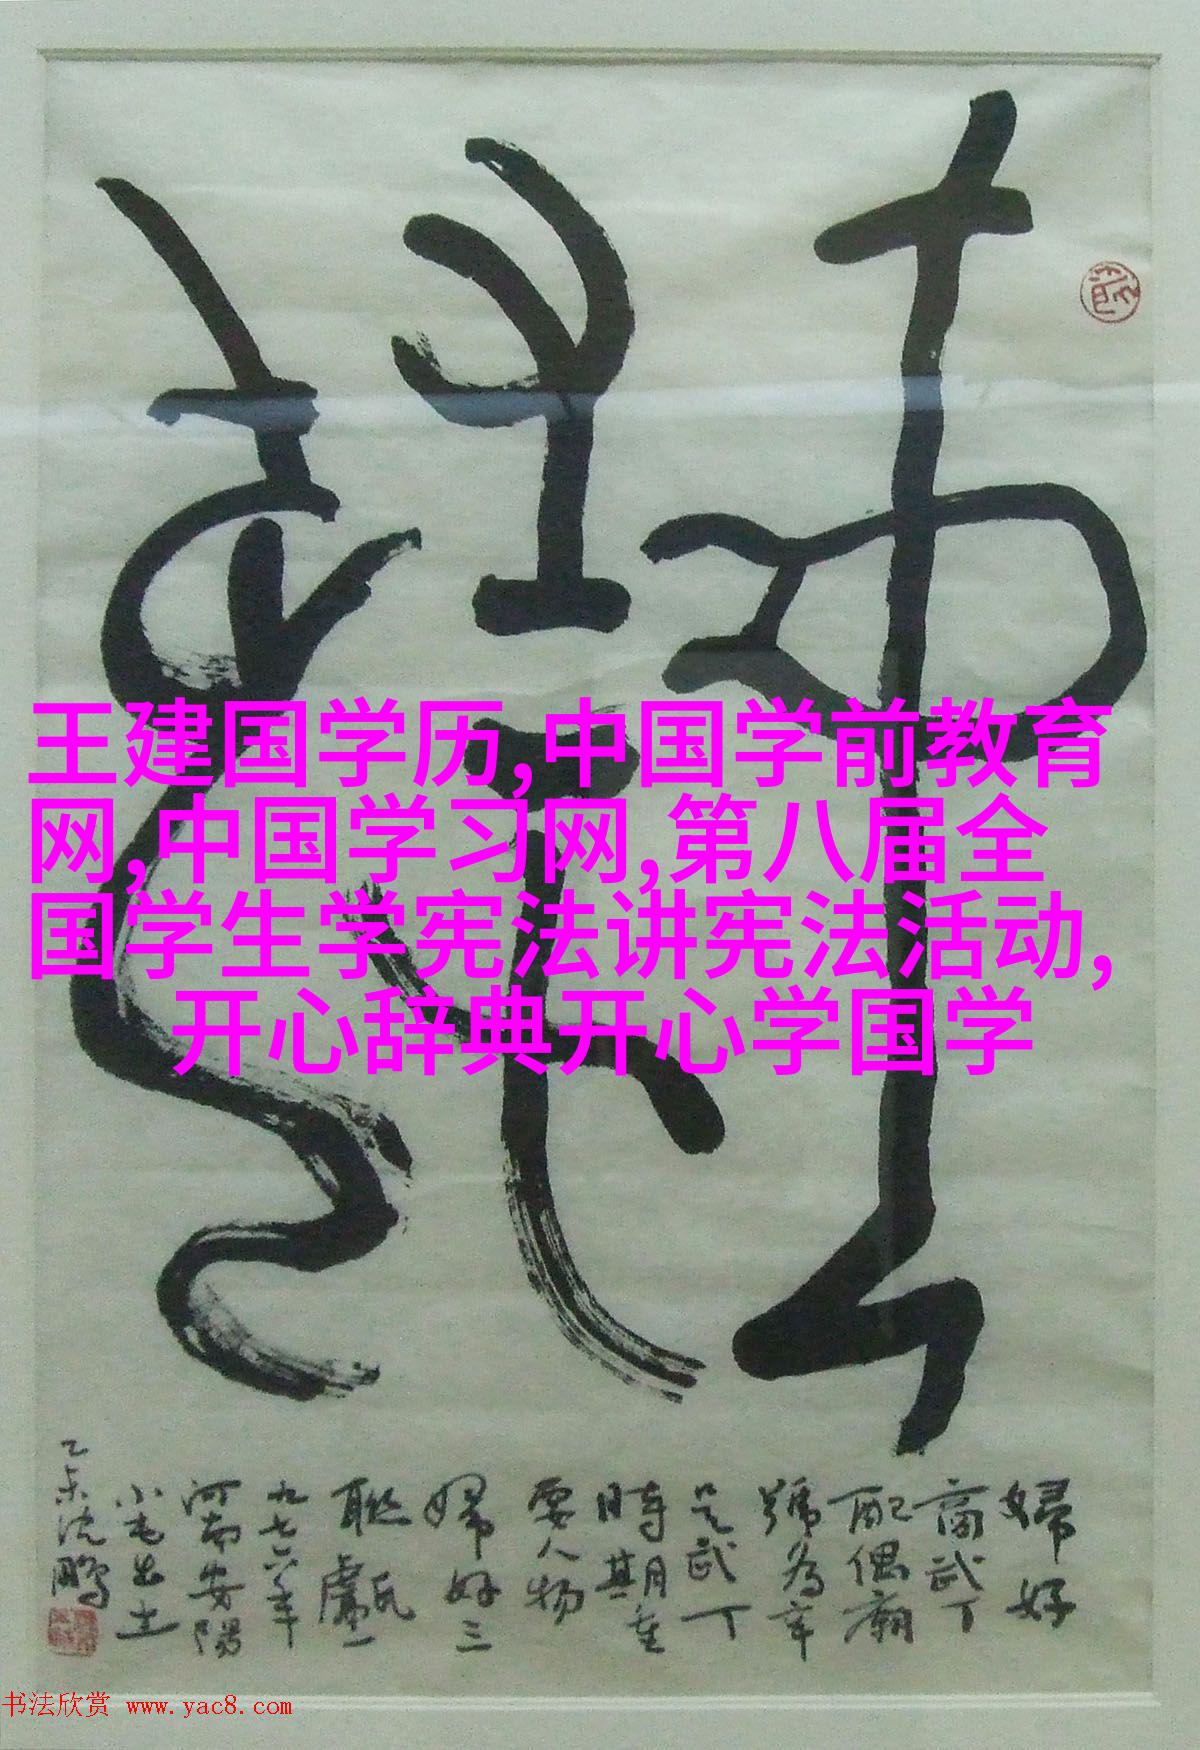 王建国学历,中国学前教育
网,中国学习网,第八届全
国学生学宪法讲宪法活动,
开心辞典开心学国学
婦好
商武丁
配偶廟
號為辛
是武丁
時期重
要人物
婦好三
聯甗一
九七六年
河南安陽
小屯出土
乙未沈鹏
书法欣赏 www.yac8.com